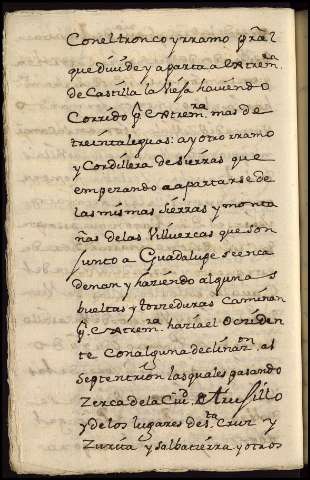 Con el tronco y rramo pral
que divide y aparta a Extremra
de Castilla la Vieja haviendo
Corrido pr Extremra mas de
treinta leguas: ay otro rramo
y Cordillera de sierras que
empezando a apartarse de
las mismas sierras y monta
ñas de las Villuercas que son
junto a Guadalupe se enca
denan y haziendo algunas
bueltas y torzeduras Caminan
pr Extremra hazia el Occiden
te Con alguna declinazon al
Septentrion las quales pasando
Zerca de la Ciud de trusillo
y de los lugares de sta Cruz y
Zurita y salbatierra y otros